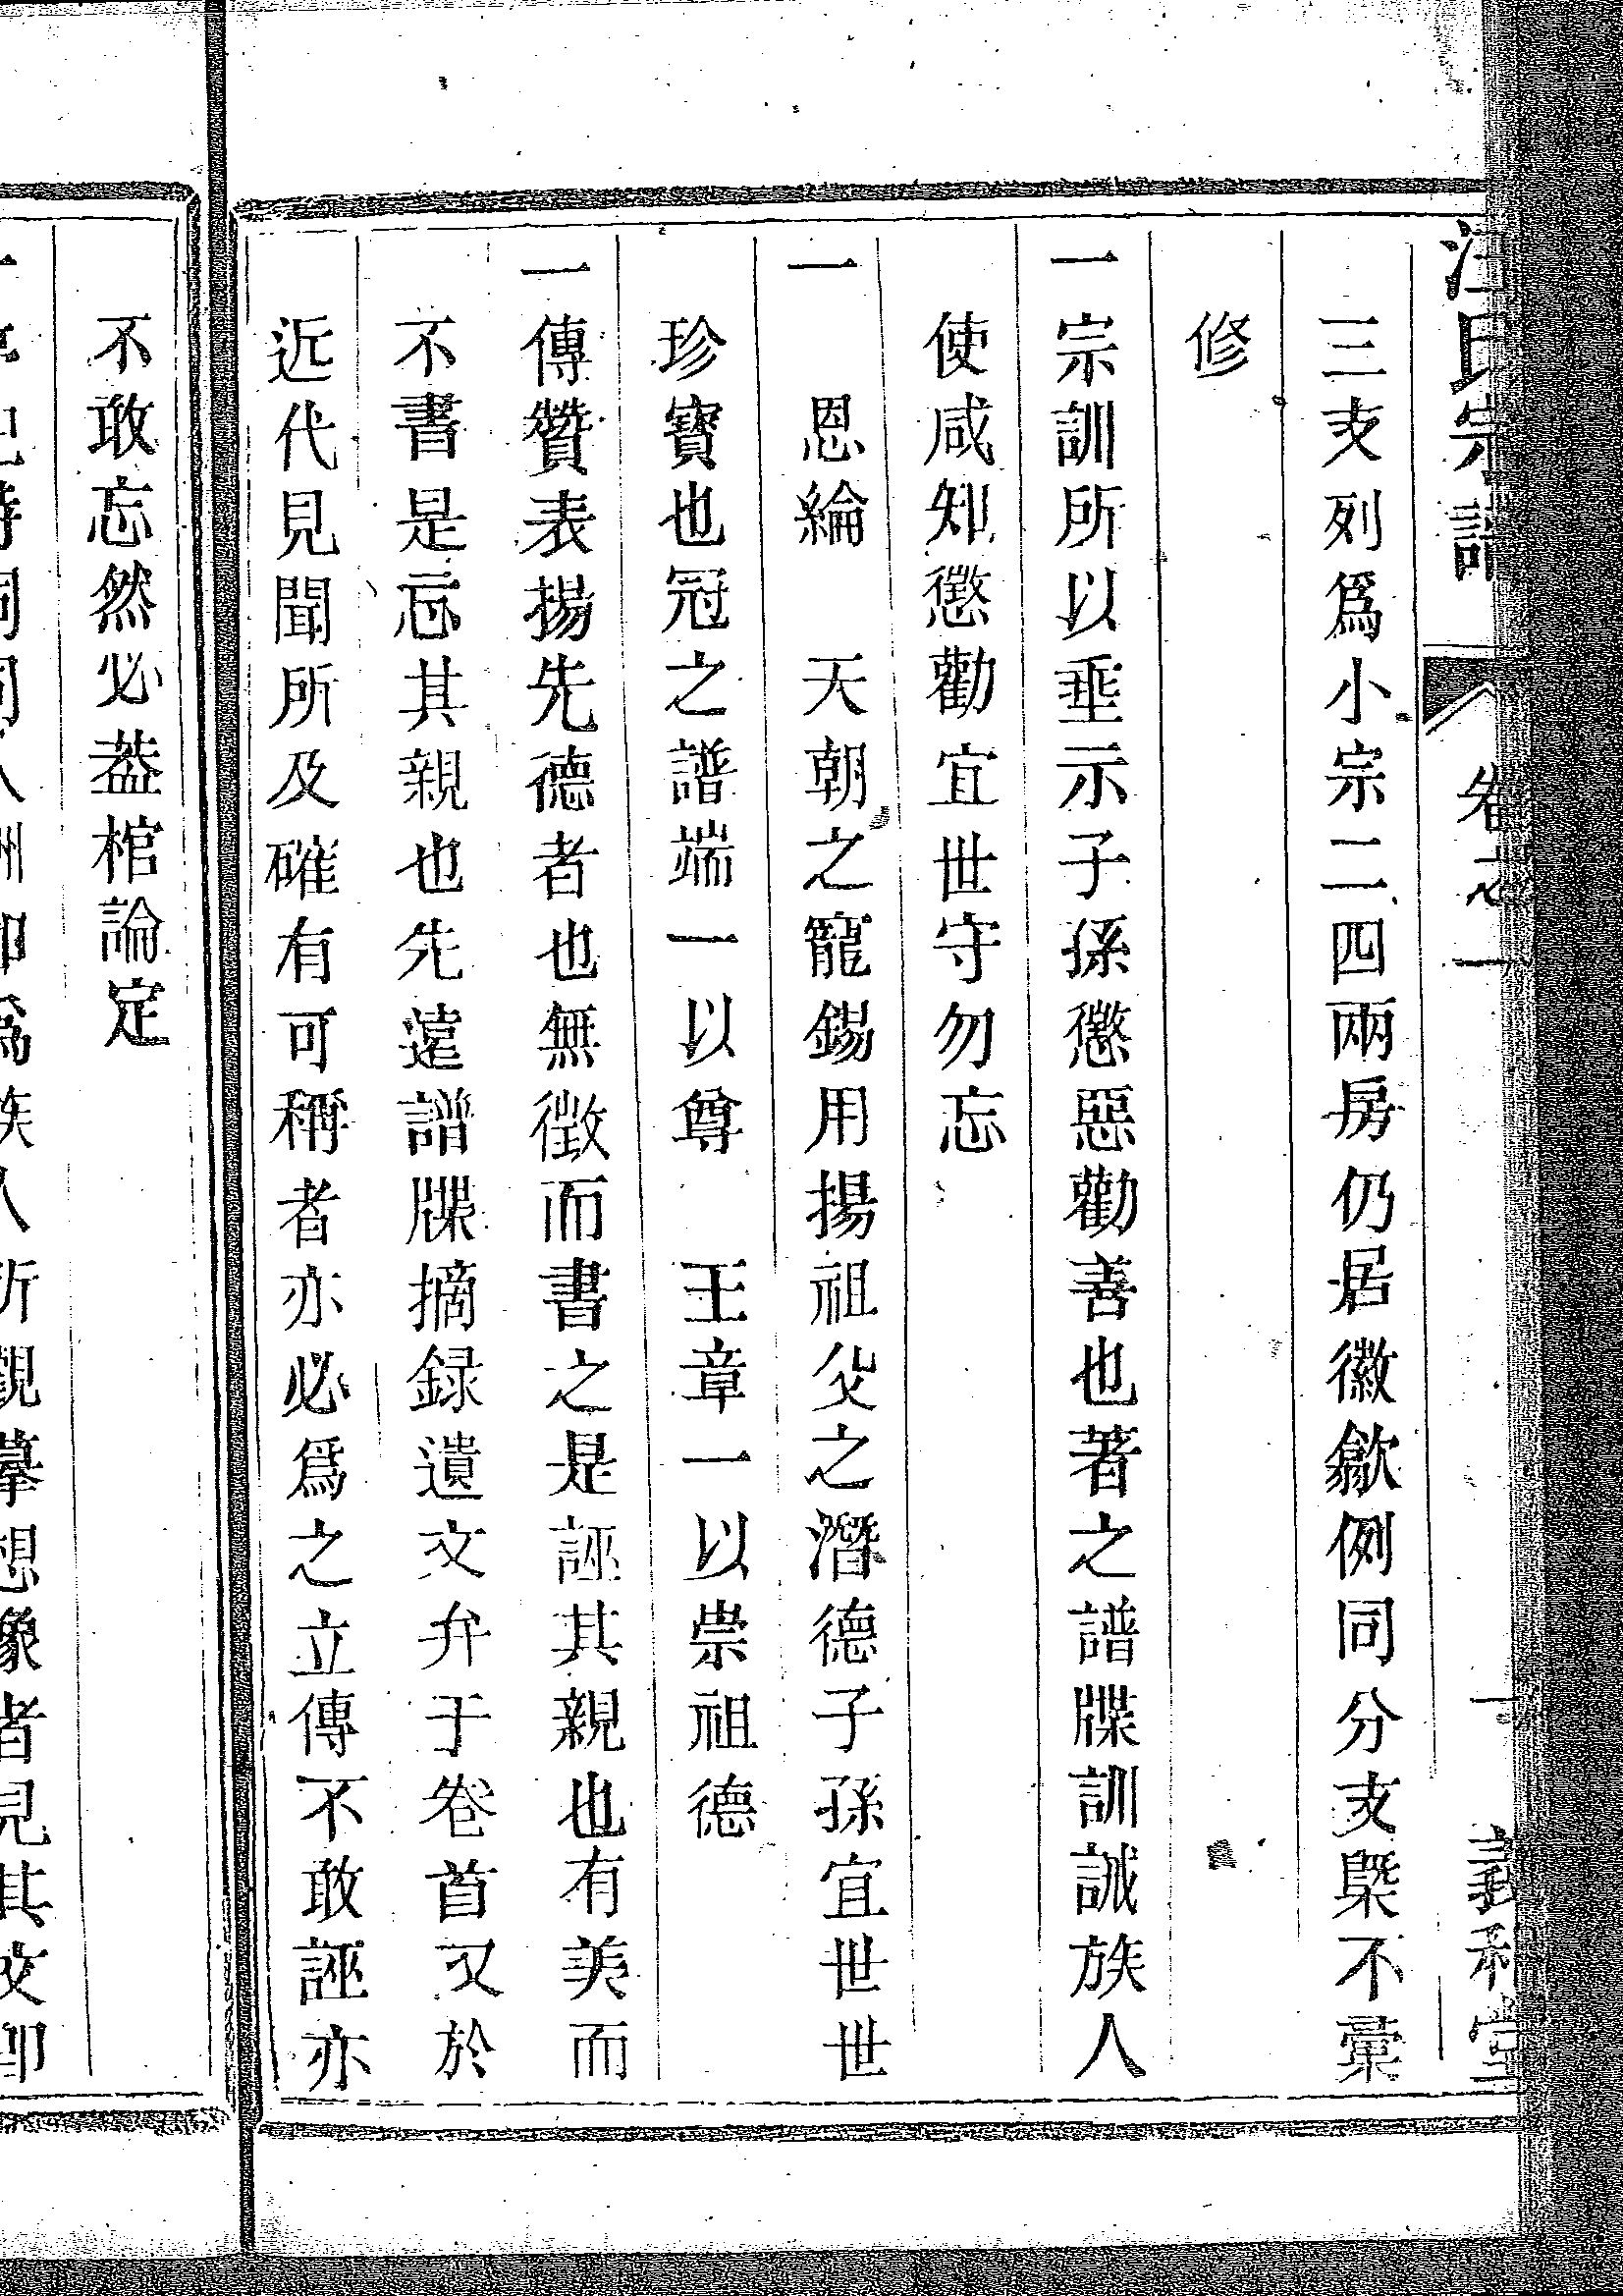 汪氏宗譜 卷之一 一 義和堂
三支列爲小宗二四兩房仍居徽歙例同分支槩不彙
修
一宗訓所以垂示子孫懲惡勸善也著之譜牒訓誡族人
使咸知懲勸宜世守勿忘
一 恩綸 天朝之寵錫用揚祖父之潛德子孫宜世世
珍寶也冠之譜端一以尊 王章一以崇祖德
一傳贊表揚先德者也無徵而書之是誣其親也有美而
不書是忘其親也先遠譜牒摘録遺文弁于卷首又於
近代見聞所及確有可稱者亦必爲之立傳不敢誣亦
不敢忘然必葢棺論定
族人所觀摹想像者見其文卽